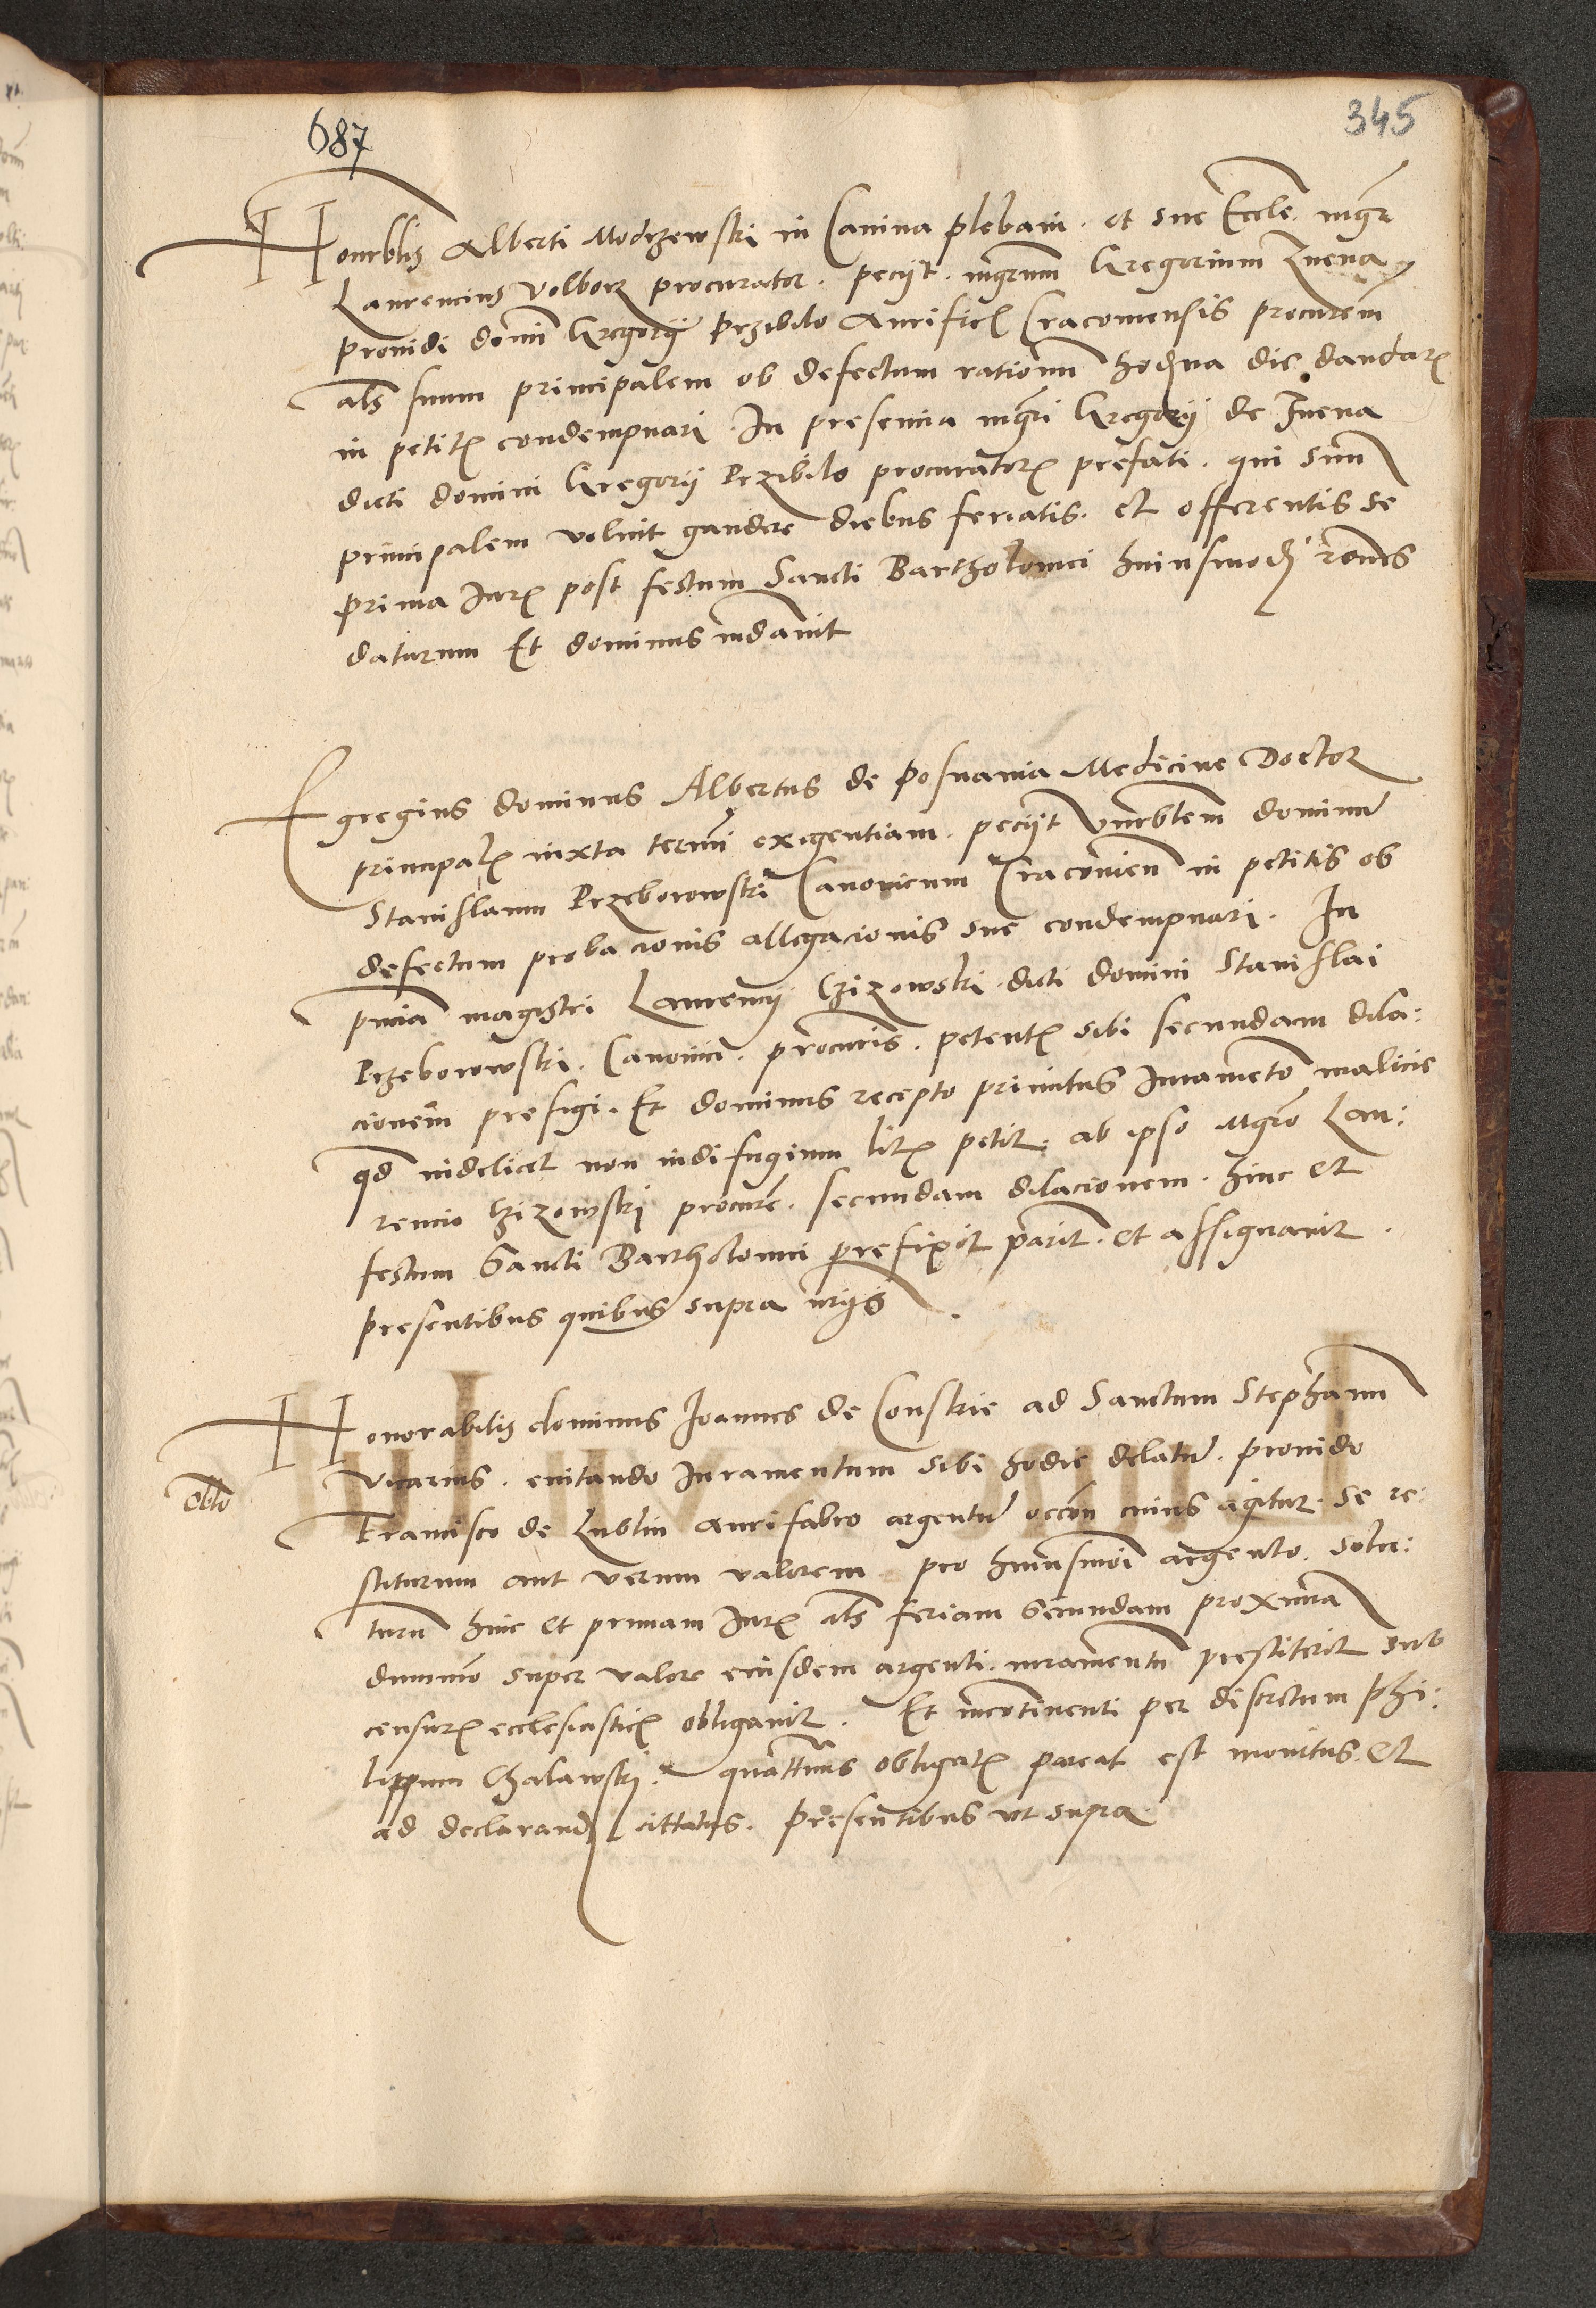 687
345
Honorblis Alberti Modrzewski in Camina plebani. et sue Eccle. mgr
Laurencius Volborz procurator. peciit. mgrum Gregorium Znena
Providi domini Gregorii Przibilo Aurificis Cracoviensis procurem
als suum principalem ob defectum rationum hodierna die dandarum
in petitis condempnari. In presencia mgri Gregorii de Znena
dicti domini Gregorii Przibilo procuratoris prefati. qui suum
principalem voluit gaudere diebus feriatis. et offerentis se
prima Juris post festum Sancti Bartholomei huiusmodi rones
daturum Et dominus mandavit
Egregius dominus Albertus de Posnania Medicine Doctor
principalis iuxta termini exigentiam. peciit venerblem dominum
Stanislaum Przeborowski Canonicum Cracovien in petitis ob
defectum probacionis allegacionis sue condempnari. In
pncia magistri Laurencii Czizowski dicti domini Stanislai
Przeborowski. Canonici. procuris. petentis sibi secundam dila:
cionem prefigi. Et dominus recepto primitus Juramento malicie
quod videlicet non in diffugium litis petit. ab ipso Mgro Lau:
rencio Czizowski procure. secundam dilacionem. hinc et
festum Sancti Bartholomei prefixit parit. et assignavit.
presentibus quibus supra in aliis.
Honorabilis dominus Joannes de Conskie ad Sanctum Stephanum
Vicarius. evitando Juramentum sibi hodie delatum. provido
oblo
Francisco de Lublin aurifabro argentum occon cuius agitur. se re:
stiturum aut verum valorem pro huiusmoi argento. solu:
turum hinc et primam Juris als feriam secundam proximam
dummodo super valore eiusdem argenti. iuramentum prestiterit sub
censuris ecclesiasticis obligavit. Et incontinenti per discretum Phi:
lippum Chalawski. quattenus obligatis pareat est monitus. Et
ad declarand cittatus. Presentibus ut supra